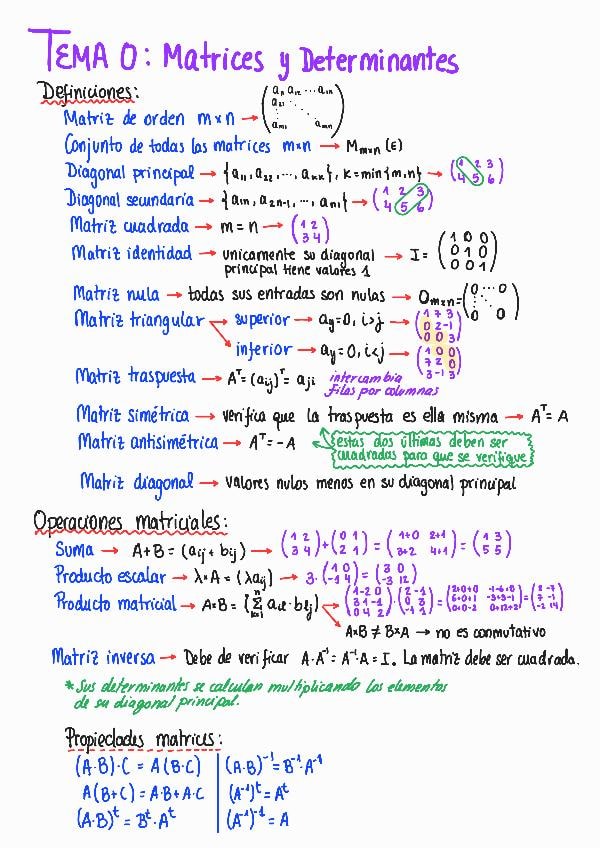 TEMA 0: Matrices y Determinantes
Definiciones:
Matriz de orden m×n → (a₁₁ a₁₂ ... a₁ₙ
a₂₁
aₘ₁ aₘₙ)
Conjunto de todas las matrices m×n → Mₘₓₙ (E)
Diagonal principal → {a₁₁, a₂₂, ..., aₖₖ}, k=min{m,n} → (1 2 3
4 5 6)
Diagonal secundaria → {a₁ₙ, a₂ₙ₋₁, ..., aₙ₁} → (1 2 3
4 5 6)
Matriz cuadrada → m = n → (1 2
3 4)
Matriz identidad → unicamente su diagonal
principal tiene valores 1 → I = (1 0 0
0 1 0
0 0 1)
Matriz nula → todas sus entradas son nulas → Oₘₓₙ = (0 ... 0
0 0)
Matriz triangular → superior → aᵢⱼ=0, i>j → (1 7 3
0 2 -1
0 0 3)
inferior → aᵢⱼ=0, i<j → (1 0 0
7 2 0
3 -1 3)
Matriz traspuesta → Aᵀ = (aᵢⱼ)ᵀ = aⱼᵢ intercambia
filas por columnas
Matriz simétrica → verifica que la traspuesta es ella misma → Aᵀ = A
Matriz antisimétrica → Aᵀ = -A estas dos últimas deben ser
cuadradas para que se verifique
Matriz diagonal → valores nulos menos en su diagonal principal
Operaciones matriciales:
Suma → A+B = (aᵢⱼ + bᵢⱼ) → (1 2
3 4) + (0 1
2 1) = (1+0 2+1
3+2 4+1) = (1 3
5 5)
Producto escalar → λ×A = (λaᵢⱼ) → 3·(1 0
-1 4) = (3 0
-3 12)
Producto matricial → A×B = (∑ · ) → (1 -2 0
3 1 -1
0 4 2) · (2 -1
0 3
-1 -1) = (2+0+0 -1-6+0
6+0+1 -3+3-1
0+0-2 0+12+2) = (2 -7
7 -1
-2 14)
A×B ≠ B×A → no es conmutativo
Matriz inversa → Debe de verificar A·A⁻¹ = A⁻¹·A = I. La matriz debe ser cuadrada.
* Sus determinantes se calculan multiplicando los elementos
de su diagonal principal.
Propiedades matrices:
(A·B)·C = A(B·C) (A·B)⁻¹ = B⁻¹·A⁻¹
A(B+C) = A·B+A·C (A⁻¹)ᵗ = Aᵗ
(A·B)ᵗ = Bᵗ·Aᵗ (A⁻¹)⁻¹ = A